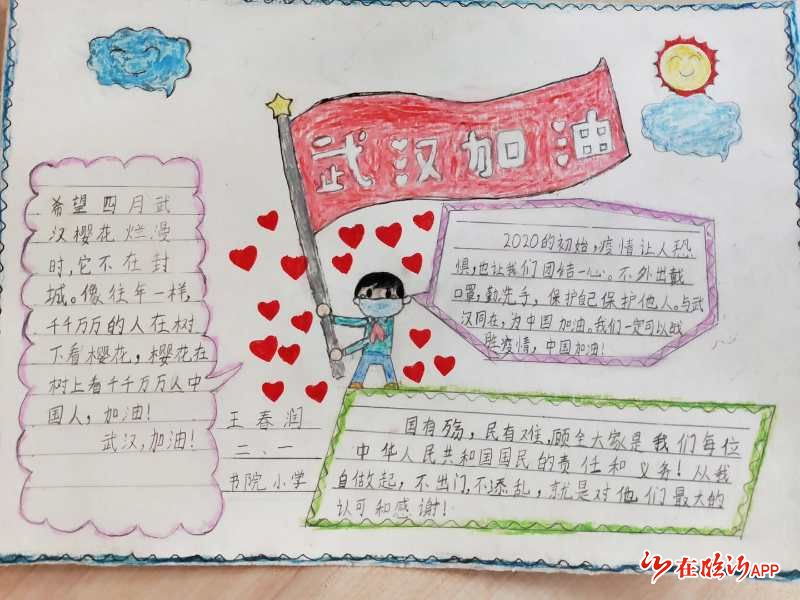 武汉加油
希望四月武
汉樱花烂漫
时,它不在封
城。像往年一样,
千千万万的人在树
下看樱花,樱花在
树上看千千万万人中
国人,加油!
武汉,加油!
2020的初始,疫情让人恐
惧,也让我们团结一心。不外出戴
口罩,勤洗手,保护自己保护他人。与武
汉同在,为中国加油。我们一定可以战
胜疫情,中国加油!
王春润
二、一
书院小学
国有殇,民有难,顾全大家是我们每位
中华人民共和国国民的责任和义务!从我
自做起,不出门,不添乱,就是对他们最大的
认可和感谢!
在临沂APP